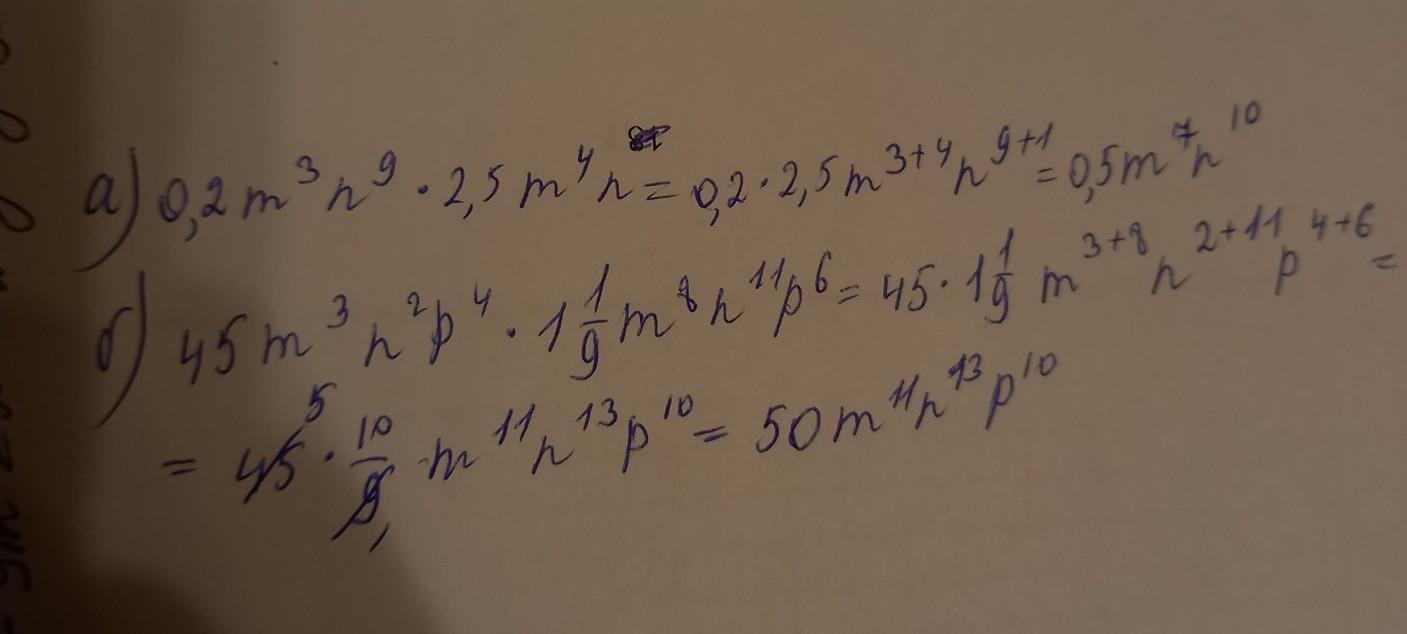 а) 0,2m³n⁹ · 2,5m⁴n = 0,2 · 2,5m³⁺⁴n⁹⁺¹ = 0,5m⁷n¹⁰
б) 45m³n²p⁴ · 1 1/9 m⁸n¹¹p⁶ = 45 · 1 1/9 m³⁺⁸n²⁺¹¹p⁴⁺⁶ =
= 45 5 · 10/9 1 m¹¹n¹³p¹⁰ = 50m¹¹n¹³p¹⁰